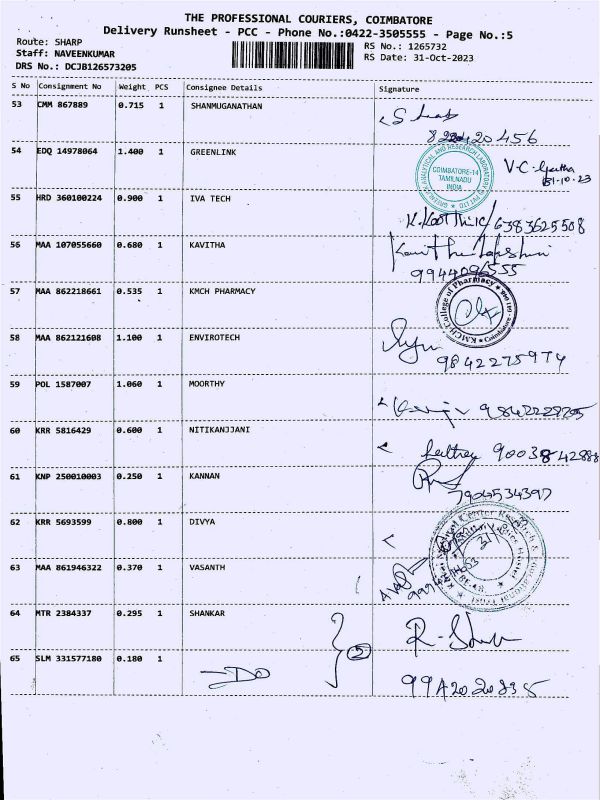 THE PROFESSIONAL COURIERS, COIMBATORE
Delivery Runsheet - PCC - Phone No.:0422-3505555 - Page No.:5
Route: SHARP
Staff: NAVEENKUMAR
DRS No.: DCJB126573205
RS No.: 1265732
RS Date: 31-Oct-2023
S No Consignment No Weight PCS Consignee Details Signature
53 CMM 867889 0.715 1 SHANMUGANATHAN
54 EDQ 14978064 1.400 1 GREENLINK
COIMBATORE-14
TAMILNADU
INDIA
V-C-Geetha
31-10-23
55 HRD 360100224 0.900 1 IVA TECH
6383625508
56 MAA 107055660 0.680 1 KAVITHA
9944096555
57 MAA 862218661 0.535 1 KMCH PHARMACY
KMCH College of Pharmacy
58 MAA 862121608 1.100 1 ENVIROTECH
9842275974
59 POL 1587007 1.060 1 MOORTHY
60 KRR 5816429 0.600 1 NITIKANJJANI
61 KNP 250010003 0.250 1 KANNAN
7904534397
62 KRR 5693599 0.800 1 DIVYA
63 MAA 861946322 0.370 1 VASANTH
64 MTR 2384337 0.295 1 SHANKAR
65 SLM 331577180 0.180 1 —DO
2